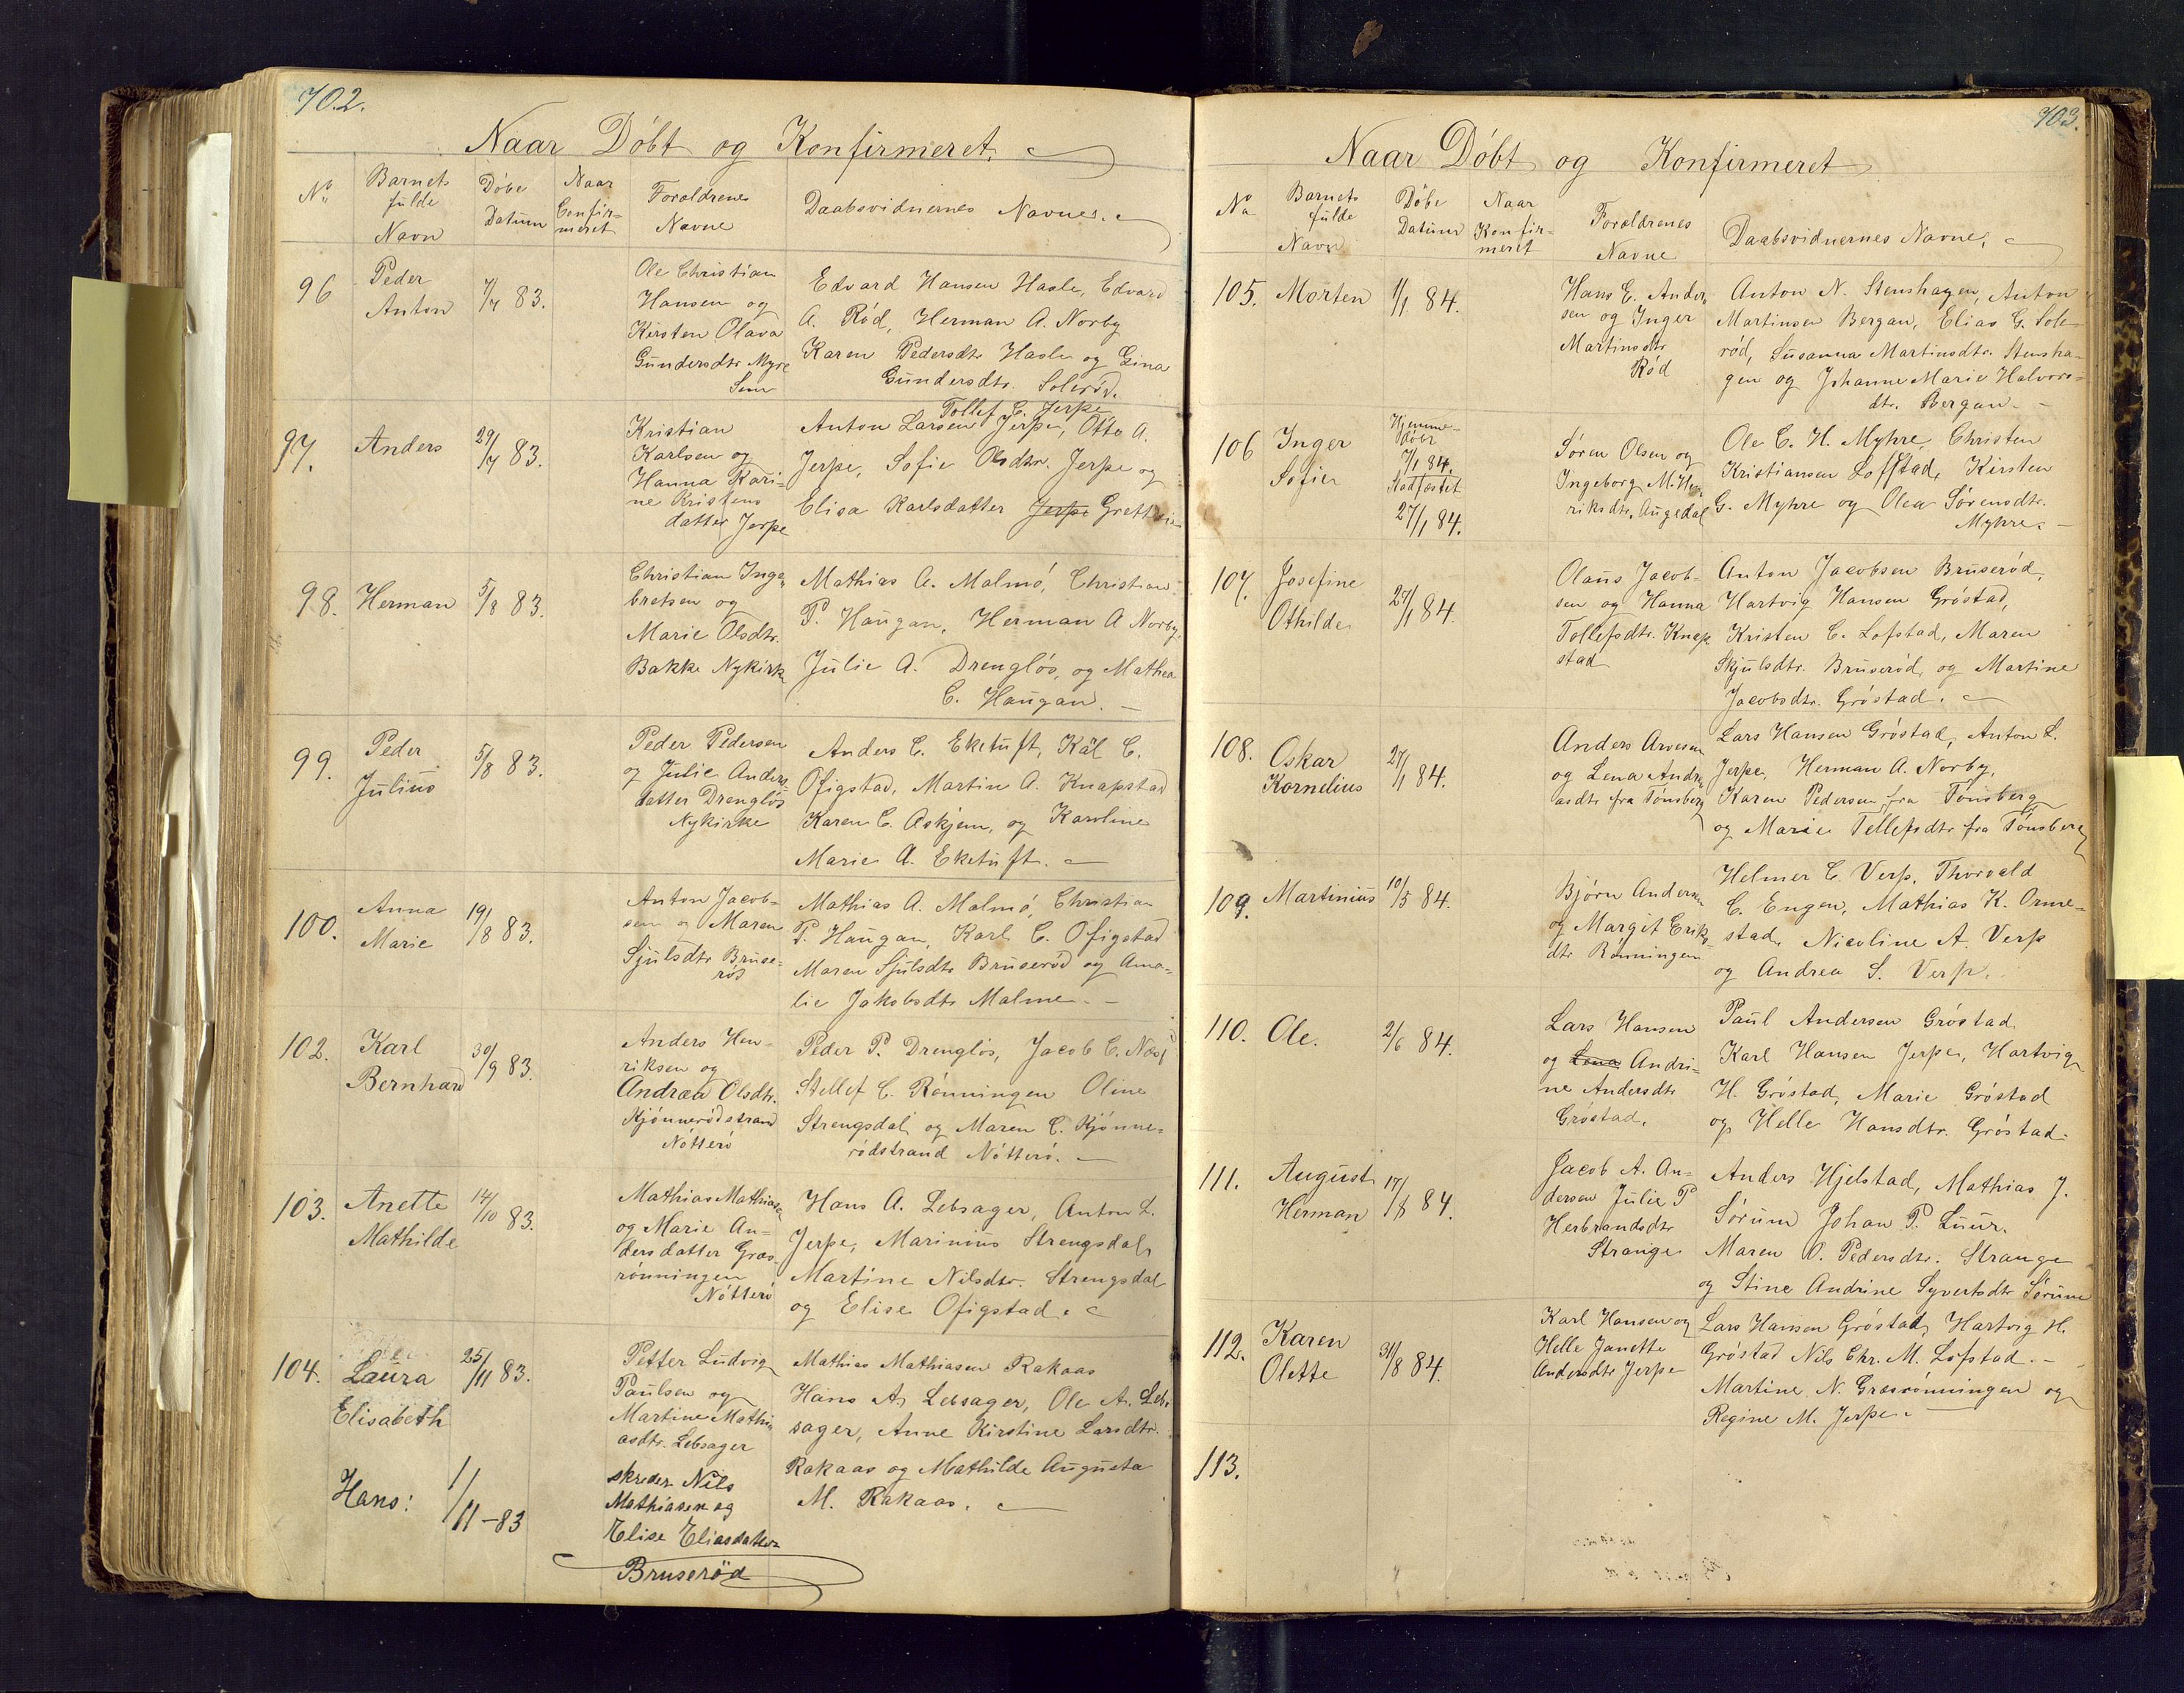 702.
Naar Döbt og Konfirmeret.
No
Barnets
fulde
Navn
Döbe
Datum
Naar
Confir-
meret
Forældrenes
Navne
Daabsvidnernes Navne.
96
Peder
Anton
83.
Ole Christian
Hansen og
Kirsten Olava
Gundersdtr Myre
Sem
Edvard Hansen Hasle, Edvard
A. Röd, Herman A. Norby
Karen Pedersdtr Hasle og Gina
Gundersdtr. Solerød.
97.
Anders
29/7 83.
Kristian
Karlsen og
Hanna Kari-
ne Kristens
datter Jerpe
Tollef C. Jerpe
Anton Larsen Jerpe, Otto A.
Jerpe, Sofie Olsdtr. Jerpe og
Elisa Karlsdatter Jerpe
98.
Herman
5/8 83.
Christian Inge-
bretsen og
Marie Olsdtr.
Bakke Nykirke
Mathias A. Malmö, Christian
P. Haugan, Herman A Norby,
Julie A. Drenglös, og Mathea
C. Haugan.
99.
Peder
Julius
5/8 83.
Peder Pedersen
og Julie Anders
datter Drenglös
Nykirke
Anders C. Eketuft, Kal C.
Ofigstad, Martin A. Knapstad
Karen C. Askjem, og Karoline
Marie A. Eketuft.
100.
Anna
Marie
19/8 83.
Anton Jacob-
sen og Maren
Sjulsdtr Bruse-
rös
Mathias A. Malmö, Christian
P. Haugan, Karl C. Ofigstad
Maren Sjulsdtr Bruseröd og Ama-
lie Jakobsdtr Malme.
102.
Karl
Bernhard
30/9 83.
Anders Hen-
riksen og
Andrea Olsdtr.
Kjönnerödstrand
Nötterö
Peder P. Drenglös, Jacob C. Næs,
Stellef C. Rönningen Oline
Strengsdal og Maren C. Kjönne-
rödstrand Nötterö.
103.
Anette
Mathilde
14/10 83.
Mathias Mathiasen
og Marie An-
dersdatter Græs-
rönningen
Nötterö
Hans A. Lebsager, Anton L.
Jerpe, Marinius Strengsdal,
Martine Nilsdtr. Strengsdal
og Elise Ofigstad.
104.
Laura
Elisabeth
25/11 83.
Petter Ludvig
Paulsen og
Martine Mathi
asdtr. Lebsager
Mathias Mathiasen Rakaas
Hans A. Lebsager, Ole A. Leb-
sager, Anne Kirstine Larsdtr.
Rakaas og Mathilde Augusta
M. Rakaas.
Hans:
1/11-83
skreder Nils
Mathiasen og
Elise Eliasdatter
Bruseröd
703.
Naar Döbt og Konfirmeret
No
Barnets
fulde
Navn
Döbe
Datum
Naar
Konfir-
meret
Forældrenes
Navne
Daabsvidnernes Navne.
105.
Morten
1/1 84.
Hans E. Ander
sen og Inger
Martinsdtr
Röd
Anton N. Stenshagen, Anton
Martinsen Bergan, Elias G. Sole-
röd, Susanna Martinsdtr. Stensha-
gen og Johanne Marie Halvors-
dtr. Bergan.
106
Inger
Sofie
Hjemme-
döbt
7/1 84.
Stadfæstet
27/1 84.
Sören Olsen og
Ingeborg M. Hen-
riksdtr. Augedal
Ole C. H. Myhre, Christen
Kristiansen Loffstad, Kirsten
G. Myhre og Olea Sörensdtr.
Myhre.
107.
Josefine
Othilde
27/1 84.
Olaus Jacob-
sen og Hanna
Tollefsdtr. Knap
stad
Anton Jacobsen Bruseröd,
Hartvig Hansen Gröstad,
Kristen C. Lofstad, Maren
Skjulsdtr. Bruseröd, og Martine
Jacobsdtr. Gröstad.
108.
Oskar
Kornelius
27/1 84.
Anders Arvesen
og Lena Andre
asdtr fra Tönsberg
Lars Hansen Gröstad, Anton L.
Jerpe, Herman A. Norby,
Karen Pedersen fra Tönsberg
og Marie Tollefsdtr fra Tönsberg
109.
Martinius
10/5 84.
Björn Andersen
og Margit Eriks-
dtr Rönningen
Helmer C. Verp, Thorvald
C. Engen, Mathias K. Orme-
stad, Nicoline A. Verp
og Andrea S. Verp.
110.
Ole.
2/6 84.
Lars Hansen
og Lena Andri-
ne Andersdtr
Gröstad.
Paul Andersen Gröstad
Karl Hansen Jerpe, Hartvig
H. Gröstad, Marie Gröstad
og Helle Hansdtr. Gröstad.
111.
August
Herman
17/8 84.
Jacob A. An-
dersen Julie P
Herbrandsdtr
Strange
Anders Hjelstad, Mathias J.
Sörum Johan P. Luur.
Maren O. Pedersdtr. Strange
og Stine Andrine Syvertsdtr Sörum
112.
Karen
Olette
31/8 84.
Karl Hansen og
Helle Janette
Andersdtr Jerpe
Lars Hansen Gröstad, Hartvig H.
Gröstad Nils Chr. M. Lofstad.
Martine N. Græsrönningen og
Regine M. Jerpe.
113.